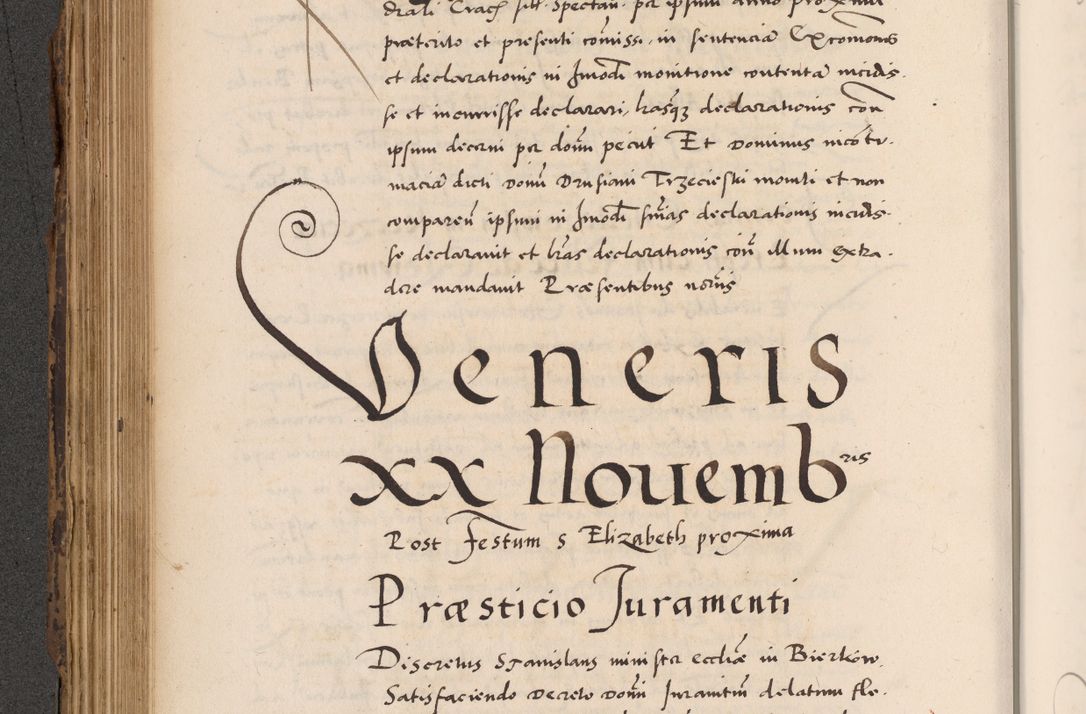 drali Crac̃ sil̃l. spectan̄. per ipsum anno proxime
præterito et presenti com̃issi, in sentenciã Excom̃onis
et declarationis in Jmodj̃ monitione contentã incidis,
se et incurrisse declarari, lrasq̃ declarationis con̄
ipsum decerni per dom̃ petiit Et Dominus in cõtu,
maciã dicti Domĩ Drusiani Trzecieski moniti et non
comparen̄ ipsum in Jmodj̃ sñias declarationis incidis,
se declarauit et lr̃as declarationis con̄ illum extra,
dere mandauit Præsentibus nor̃ijs
Veneris
xx Nouembris
Post festum s Elizabeth proxima
Præsticio Juramenti
Discretus Stanislaus minister eccl̃iæ in Bierkow,
Satisfaciendo Decreto Domĩ Juramtũ delatum sle,